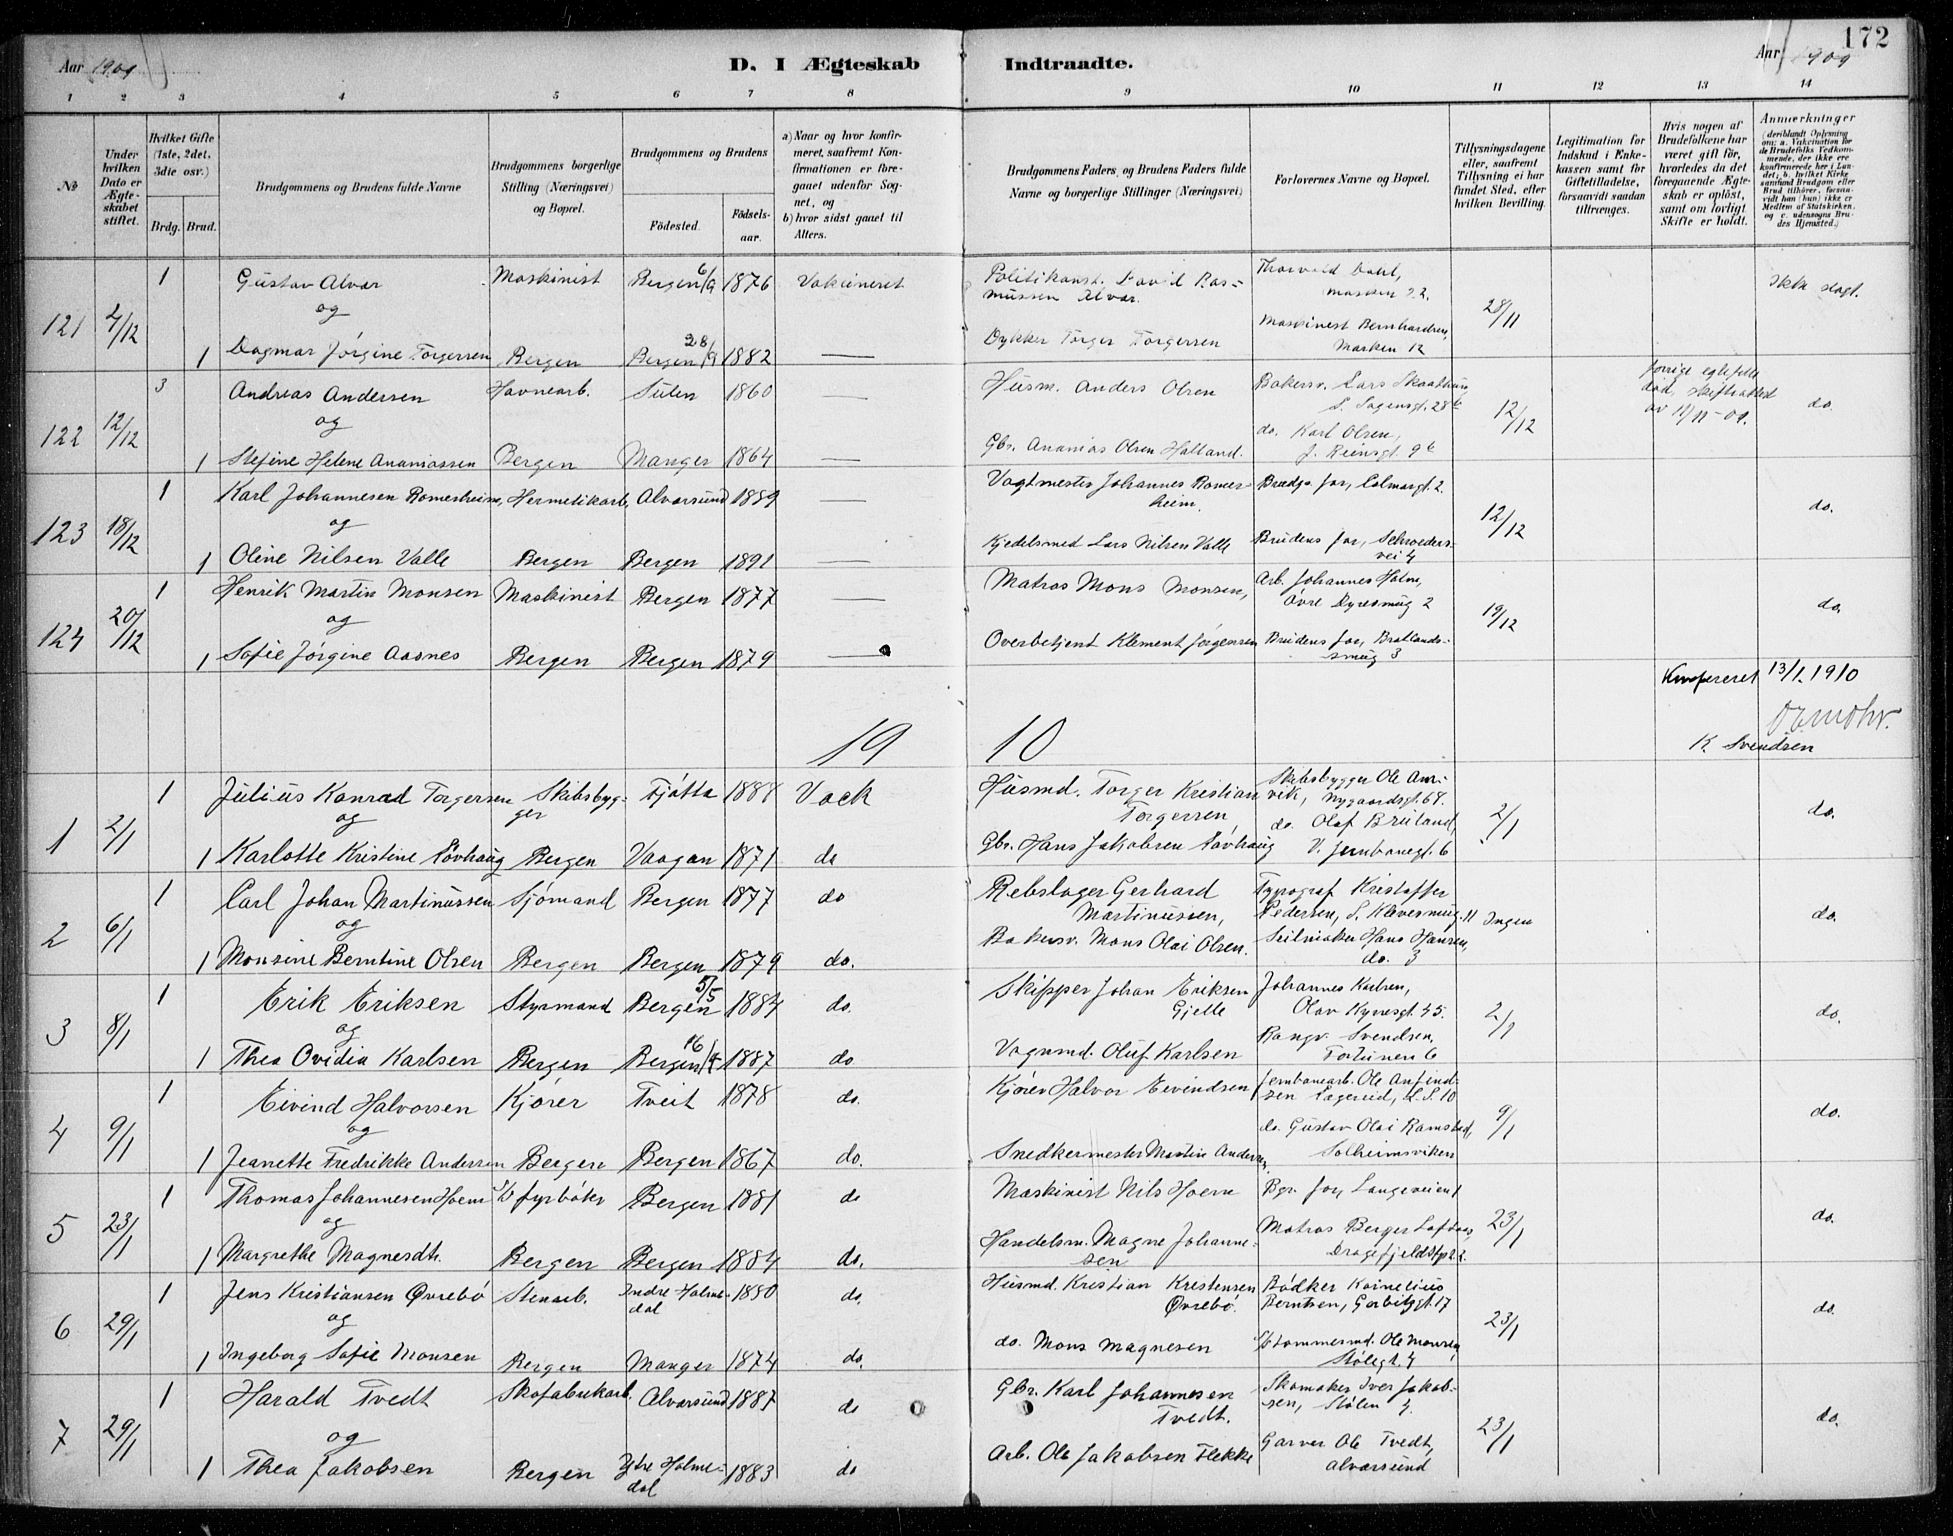 172
Aar 1909
D. I Ægteskab Indtraadte.
Aar 1909
1 2 3 4 5 6 7 8 9 10 11 12 13 14
№
Under hvilken Dato er Ægteskabet stiftet.
Hvilket Gifte (1ste, 2det, 3die osv.)
Brdg. Brud.
Brudgommens og Brudens fulde Navne
Brudgommens borgerlige Stilling (Næringsvei) og Bopæl.
Brudgommens og Brudens
Fødested.
Fødsels-aar.
a) Naar og hvor konfirmeret, saafremt Konfirmationen er foregaaet udenfor Sognet, og
b) hvor sidst gaaet til Alters.
Brudgommens Faders, og Brudens Faders fulde Navne og borgerlige Stillinger (Næringsvei)
Forlovernes Navne og Bopæl.
Tillysningsdagene eller, saafremt Tillysning ei har fundet Sted, efter hvilken Bevilling.
Legitimation for Indskud i Enkekassen samt for Giftetilladelse, forsaavidt saadan tiltrænges.
Hvis nogen af Brudefolkene har været gift før, hvorledes da det foregaaende Ægteskab er opløst, samt om lovligt Skifte er holdt.
Anmerkninger
(deriblandt Oplysning om: a. Vakcination for de Brudefolks Vedkommende, der ikke ere konfirmerede her i Landet; b. hvilket Kirkesamfund Brudgom eller Brud tilhører, forsaavidt han (hun) ikke er Medlem af Statskirken, og c. udensogns Brudes Hjemsted.)
121 4/12 1 Gustav Alvar Maskinist Bergen 6/9 1876 Vakcineret Politikonst. David Rasmussen Alvar. Thorvald Dahl, Marken 22. 28/11 Ikke slægt.
og
1 Dagmar Jørgine Torgersen Bergen Bergen 28/9 1882 — Dykker Torger Torgersen Maskinist Bernhardsen, Marken 12
122 12/12 3 Andreas Andersen Havnearb. Sulen 1860 — Husm. Anders Olsen Bakersv. Lars Skaathun, 12/12 forrige egtefelle død, skifteattest av 11/11-09. do.
og
1 Stefine Helene Ananiassen Bergen Manger 1864 — Gbr. Ananias Olsen Halland. do. Karl Olsen,
123 18/12 1 Karl Johannesen Romesheim, Hermetikarb. Alversund 1889 — Vagtmester Johannes Romesheim. Brudg. far, 12/12 do.
og
1 Oline Nilsen Valle Bergen Bergen 1891 — Kjedelsmed Lars Nilsen Valle Brudens far, Schroedersvei 4
124 20/12 1 Henrik Martin Monsen Maskinist Bergen 1877 — Matros Mons Monsen, Arb. Johannes Holm, Øvre Dyresmug 2 19/12 do.
og
1 Sofie Jørgine Aasnes Bergen Bergen 1879 — Overbetjent Klement Jørgensen Brudens far, Bratlandssmug 3
13/1. 1910
K Svendsen
19 10
1 2/1 1 Julius Konrad Torgersen Skibsbygger Tjøtta 1888 Vack Husmd. Torger Kristian Torgersen, Skibsbygger Ole Amvik, Nygaardsgt. 68. 2/1 do.
og
1 Karlotte Kristine Løvhaug Bergen Vaagan 1871 do Gbr. Hans Jakobsen Løvhaug do. Olaf Breiland, V. Jernbanegt. 6
2 6/1 1 Carl Johan Martinussen Sjømand Bergen 1877 do Rebslager Gerhard Martinussen, Typograf Kristoffer Pedersen, S. Kløvesmug. 11 Ingen do.
og
1 Monsine Berntine Olsen Bergen Bergen 1879 do. Bakersv. Mons Olai Olsen. Seilmaker Hans Hansen, do. 3
3 8/1 1 Erik Eriksen Styrmand Bergen 5/5 1884 do. Skipper Johan Eriksen Gjelle Johannes Karlsen, Olav Kyrresgt. 45. 2/1 do.
og
1 Thea Ovidia Karlsen Bergen Bergen 1887 do Vognmd. Oluf Karlsen Rangv. Svendsen, Fortunen 6
4 9/1 1 Eivind Halvorsen Kjører Tveit 1878 do. Kjører Halvor Eivindsen Jernbanearb. Ole Anfindsen 9/1 do.
og
1 Jeanette Fredrikke Andersen Bergen Bergen 1867 do. Snedkermester Martin Andersen. do. Gustav Olai Ramstad, Solheimsviken
5 23/1 1 Thomas Johannesen Hoem Fyrbøter Bergen 1881 do Maskinist Nils Hoem Bgr. far, Langeveien 1 23/1 do.
og
1 Margrethe Magnesdtr. Bergen Bergen 1884 do. Handelsm. Magne Johannesen Matros Berger Loftaas
6 29/1 1 Jens Kristiansen Øvrebø Stenarb. Indre Holmedal 1880 do. Husmd. Kristian Kristensen Øvrebø. Bødker Kornelius Berntsen, 23/1 do.
og
1 Ingeborg Sofie Monsen Bergen Manger 1874 do. do. Mons Magnesen Tømmermd. Ole Monsen, Stølegt. 4
7 29/1 1 Harald Tvedt Skofabrikarb. Alversund 1887 do Gbr. Karl Johannesen Tvedt. Skomaker Iver Jakobsen, Stølen 4. 23/1 do.
og
1 Thea Jakobsen Bergen Ytre Holmedal 1883 do Arb. Ole Jakobsen Flekke Garver Ole Tvedt, Alversund